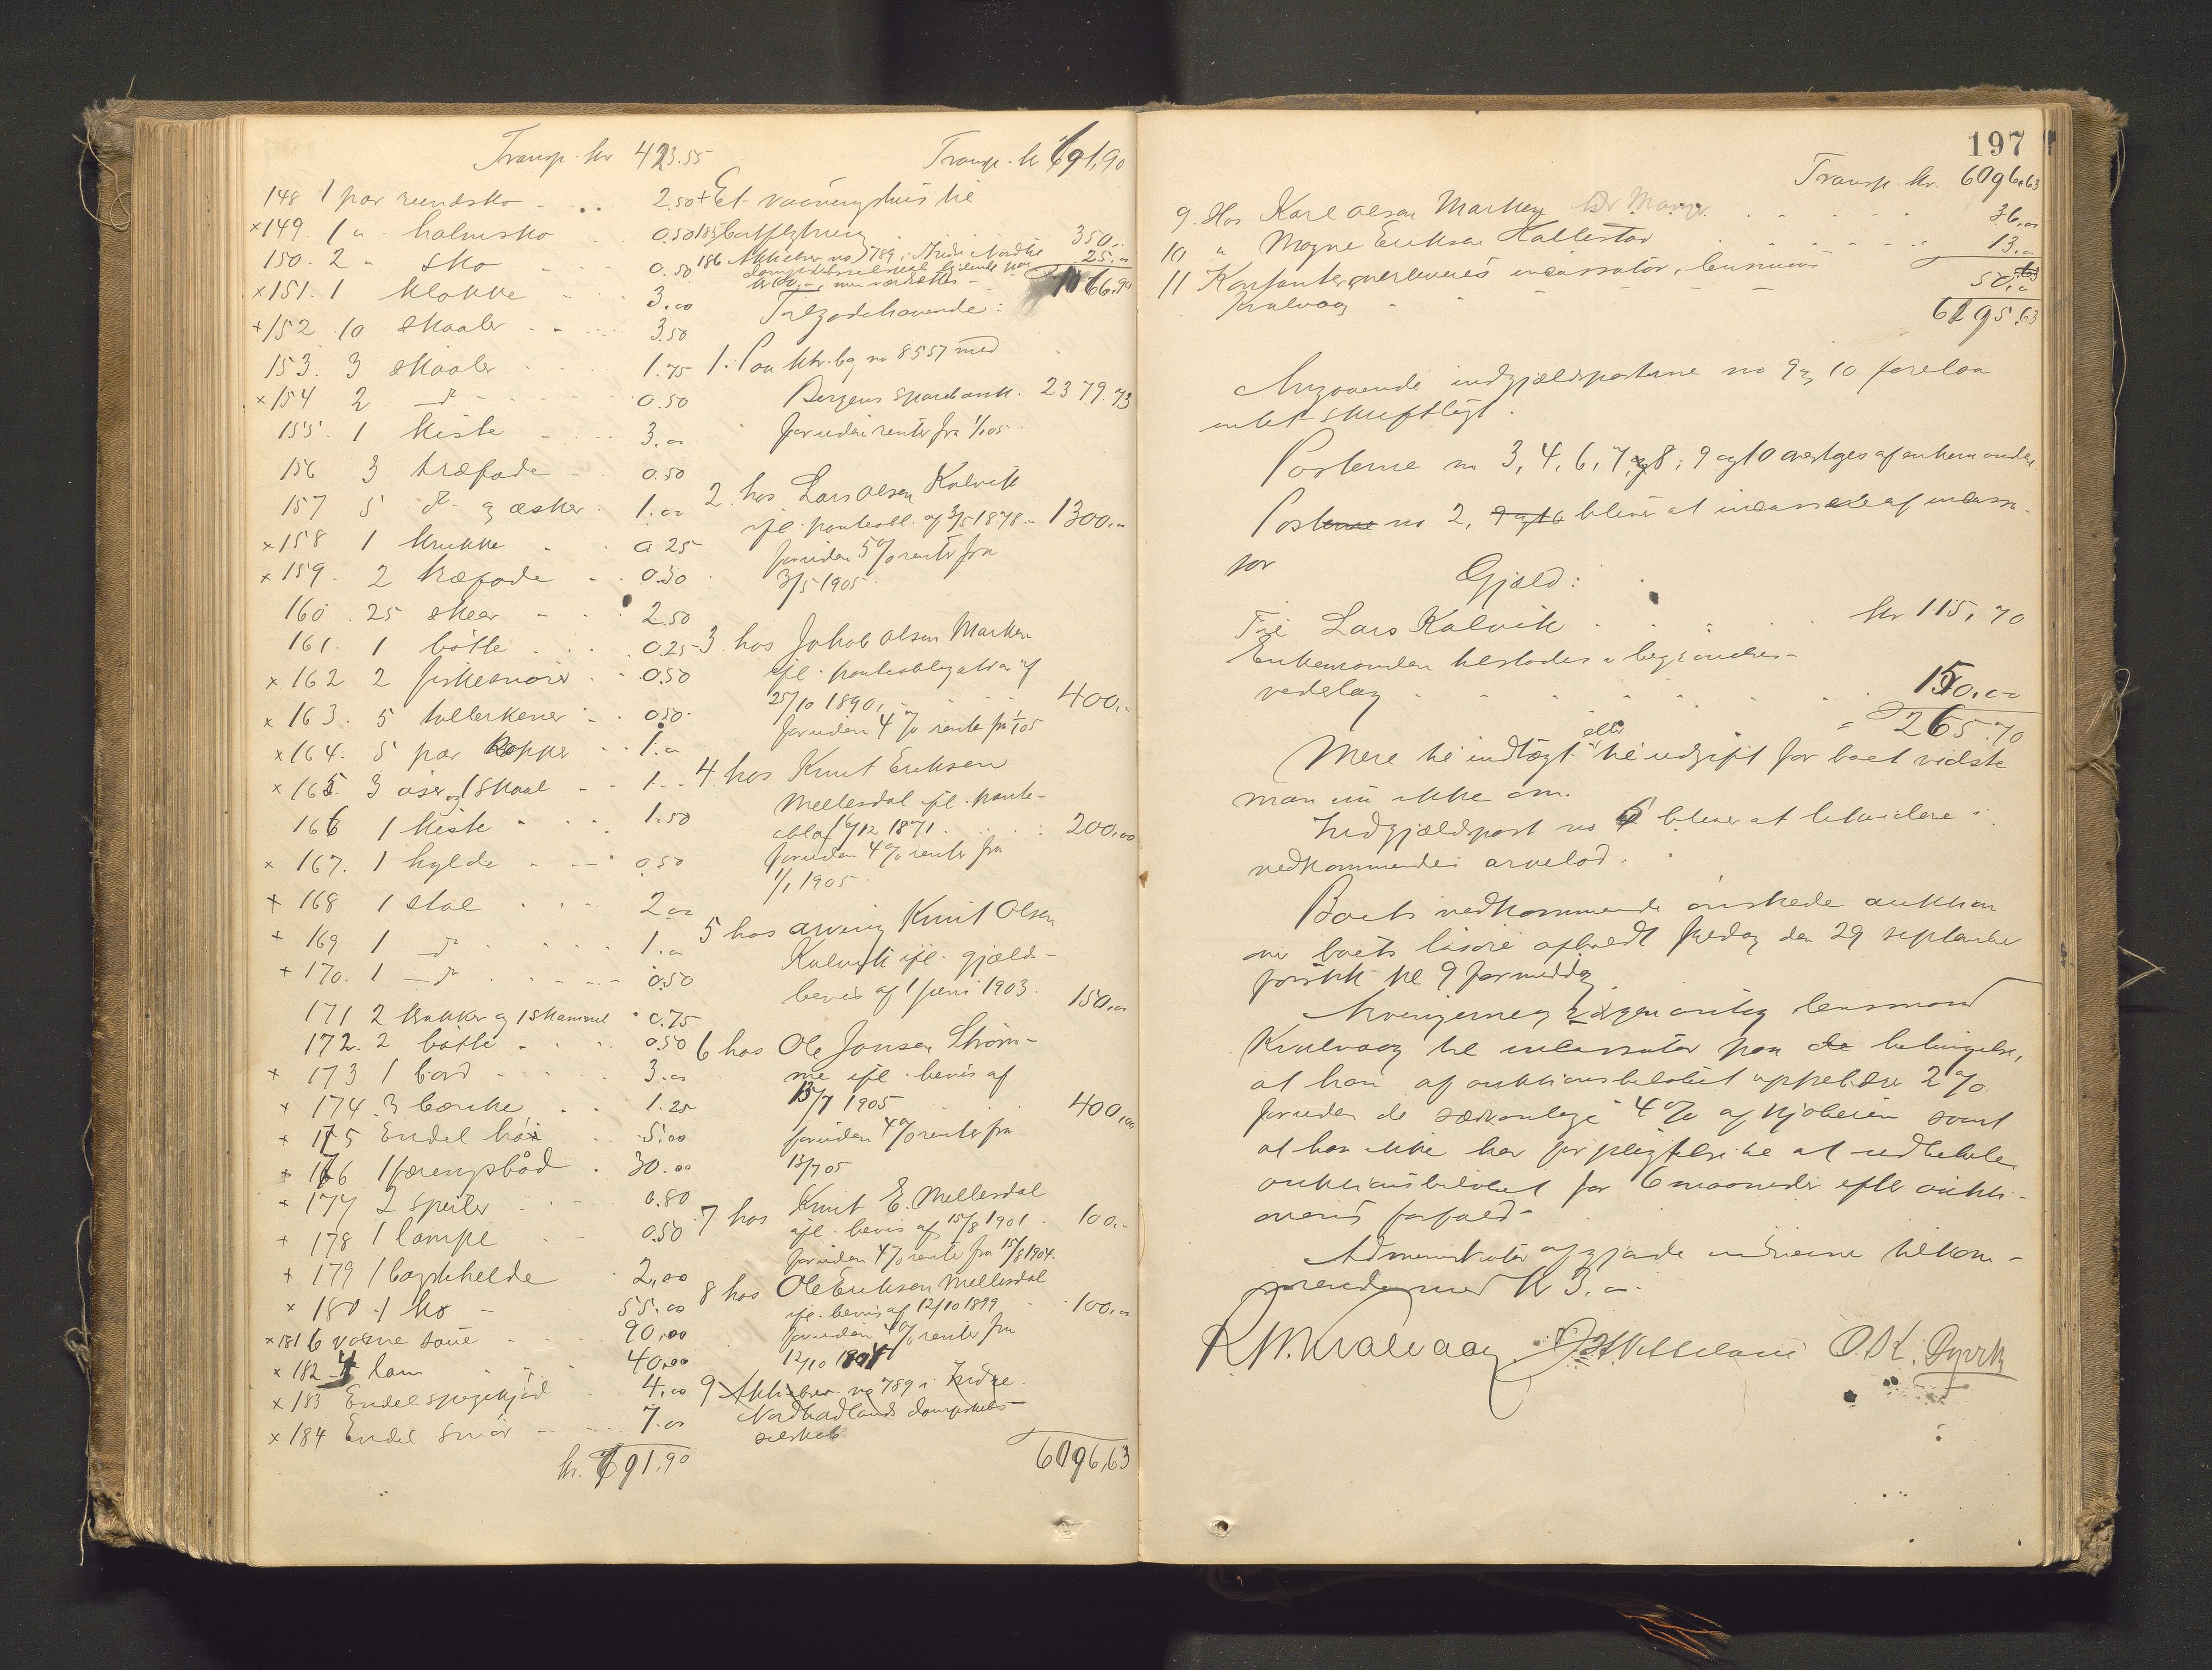 Transp. kr 423.55
148 1 par rundsko - 2.50
×149. 1 " halmsko 0.50
150. 2 " sko - 0.50
×151. 1 klokke - 3.00
+152 10 skaaler - 3.50
153. 3 skaaler 1.75
×154 2 do - 0.50
155. 1 kiste - 3.00
156 3 træfade - 0.50
157 5 do og æsker 1.00
×158 1 krukke 0.25
×159. 2 træfade - 0.30
160. 25 skeer - 2.50
161. 1 bøtte 0.25
×162 2 fiskesnører 0.50
×163. 5 tallerkener 0.50
×164. 5 par kopper 1.00
×165. 3 øser og 1 skaal - 1.-
166 1 kiste - 1.50
×167. 1 hylde - 0.50
+168 1 stol 2.00
+169 1 do 1.00
+170. 1 do - 0.50
171 2 krakker og 1 skammel 0.75
172. 2 bøtte 0.50
+173 1 bord 3.00
+174. 3 bænke 1.25
+175 Endel høi 5.00
+176 1 færengsbåd 30.00
+177 2 speiler 0.80
+178 1 lampe 0.50
+179 1 bagstehelde 2,00
×180 1 ko - 55.00
×181 6 voksne soue 90.00
×182 4 lam 40.00
×183 Endel spegekjød 4.00
×184 Endel smør 7.00
kr. 691.90
Transp. kr 691,90
+ Et vaaningshus til
185 bortflytning 350.-
186 Aktiebrev no 789 i Indre Nordhl.
dampskibsselskab lydende paa
kr 100,- 25.00
1066.90
Tilgodehavende:
1. Paa ktr. bg no 8557 med
Bergens sparebank. 2379.73
foruden renter fra 1/1 05
2. hos Lars Olsen Kalvik
ifl. panteobl. af 3/5 1878 - 1300.00
foruden 5% renter fra
3/5 1905
3 hos Jakob Olsen Marken
ifl. panteobligation af
25/10 1890, 400.-
foruden 4% rente fra 1/1 05
4. hos Knut Eriksen
Mellesdal ifl. pante-
obl af 16/12 1871 200.00
foruden 4% renter fra
1/1 1905
5 hos arving Knut Olsen
Kalvik ifl. gjælds-
bevis af 1 juni 1903. 150.00
6 hos Ole Jonsen Strøm-
me ifl. bevis af
13/7 1905 400,00
foruden 4% renter fra
13/7 05
7 hos Knut E. Mellesdal
ifl. bevis af 15/8 1901 100.-
foruden 4% renter fra 15/8 1904.
8 hos Ole Eriksen Mellesdal
ifl. bevis af 12/10 1899 100.00
foruden 4% renter fra
12/10 1904
9 Aktiebrev no 789 i Indre
Nordhordlands dampskibs-
selskab
6096,63
197
Transp. kr. 6096.63
9. Hos Karl Olsen Marken 36.00
10 " Mogne Eriksen Hallestad 13.00
11 Kontanter overleveres incassator, lensmand
Kvalvaag 50.00
6195.63
Angaaende indgjældsposterne no 9 og 10 forelaa
intet skriftligt.
Posterne no 3, 4, 6, 7, og 8, 9 og 10 overtages af enkemanden
Posterne no 2, 9 og 10 bliver at incassere af incassa-
tor
Gjæld:
Til Lars Kalvik kr 115,70
Enkemanden tilstodes i begravelses-
vederlag 150.00
= 265.70
Mere til indtægt eller til udgift for boet vidste
man nu ikke om.
Indgjældspost no 6 bliver at likvidere i
vedkommendes arvelod.
Boets vedkommende ønskede auktion
over boets løsøre afholdt fredag den 29 september
førstk. kl 9 formiddag
Arvingerne lensmand
Kvalvaag til incassator paa de betingelse,
at han af auktionsbeløbet oppebærer 2%
foruden de sædvanlige 4% af kjøberen samt
at han ikke har forpligtelse til at udbetale
auktionsbeløbet før 6 maaneder efter aukti-
onens forfald.
Administrator afgjorde mændene tilkom-
mende med kr 3.00
R. M. Kvalvaag O. K. Dyrvik